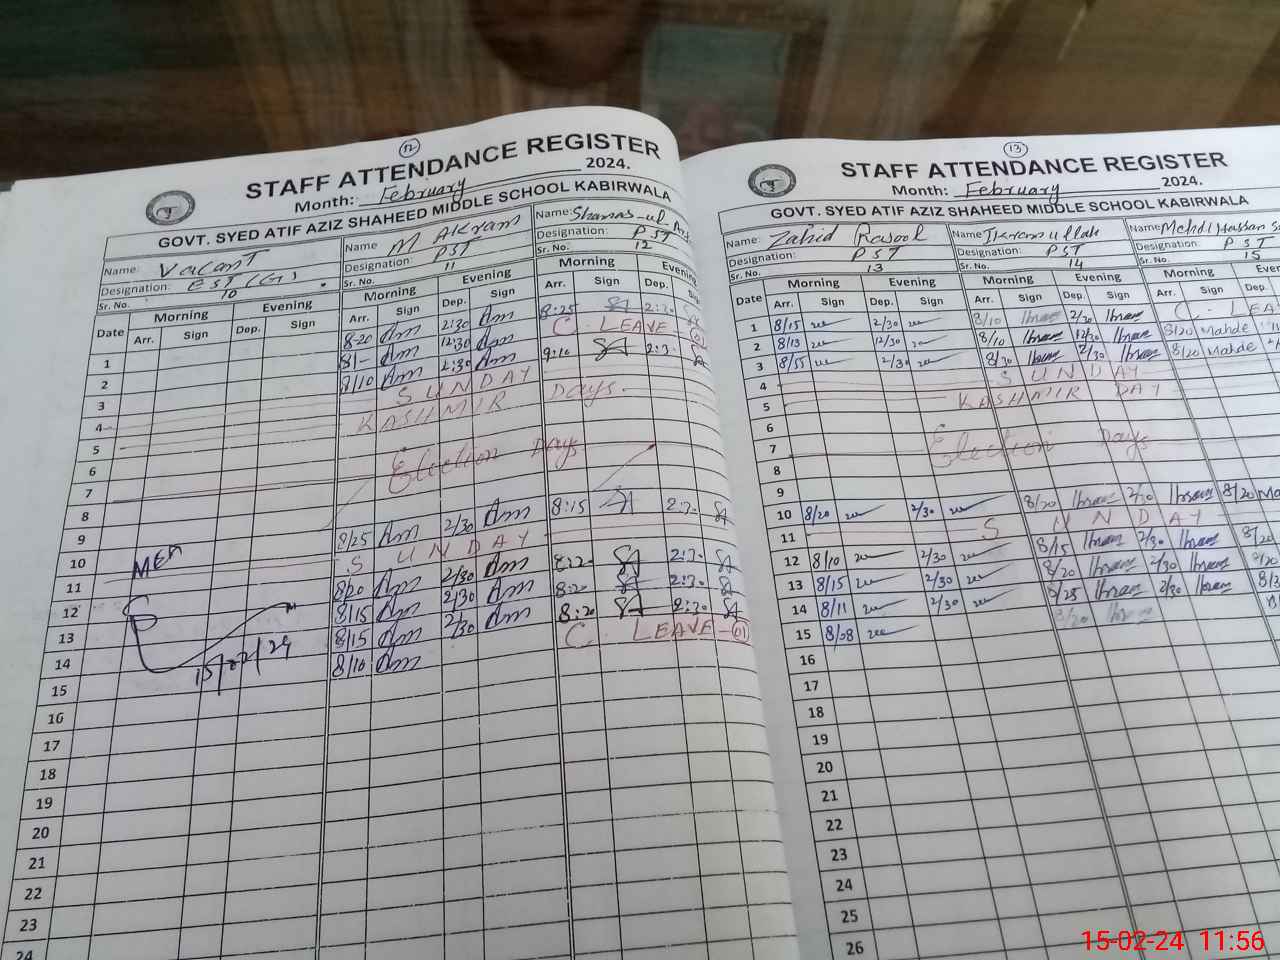 12
STAFF ATTENDANCE REGISTER
Month: February 2024.
GOVT. SYED ATIF AZIZ SHAHEED MIDDLE SCHOOL KABIRWALA
Name: Vacant Name M Akram Name: Shamas-ul
Designation: EST (G) Designation: PST Designation: PST
Sr. No. 10 Sr. No. 11 Sr. No. 12
Date Morning Evening Morning Evening Morning
Arr. Sign Dep. Sign Arr. Sign Dep. Sign Arr. Sign Dep.
1 8-20 Am 2:30 Am 8:25 2:30
2 8/- Am 12:30 Am C. LEAVE - 01
3 8/10 Am 2:30 Am 9:10 2:30
4 SUNDAY
5 KASHMIR Days.
6
7 Election Days
8
9
10 8/25 Am 2/30 Am 8:15 2:30
11 SUNDAY
12 8/20 Am 2/30 Am 8:20 2:30
13 8/15 Am 2/30 Am 8:20 2:30
14 8/15 Am 2/30 Am 8:20 2:30
15 8/10 Am C. LEAVE - 01
15/02/24
16
17
18
19
20
21
22
23
24
13
STAFF ATTENDANCE REGISTER
Month: February 2024.
GOVT. SYED ATIF AZIZ SHAHEED MIDDLE SCHOOL KABIRWALA
Name: Zahid Rasool Name Ikramullah Name Mehdi Hassan
Designation: PST Designation: PST Designation: PST
Sr. No. 13 Sr. No. 14 Sr. No. 15
Date Morning Evening Morning Evening Morning
Arr. Sign Dep. Sign Arr. Sign Dep. Sign Arr. Sign
1 8/15 2/30 8/10 Ikram 2/30 Ikram C. LEA
2 8/13 12/30 8/10 Ikram 12/30 Ikram 8/20 Mahde
3 8/55 2/30 8/30 Ikram 2/30 Ikram 8/20 Mahde
4 SUNDAY
5 KASHMIR DAY
6
7 Election Days
8
9
10 8/20 2/30 8/20 Ikram 2/30 Ikram 8/20
11 SUNDAY
12 8/10 2/30 8/15 Ikram 2/30 Ikram 8/20
13 8/15 2/30 8/20 Ikram 2/30 Ikram
14 8/11 2/30 8/25 Ikram 2/30 Ikram
15 8/08 8/20 Ikram
16
17
18
19
20
21
22
23
24
25
26
15-02-24 11:56